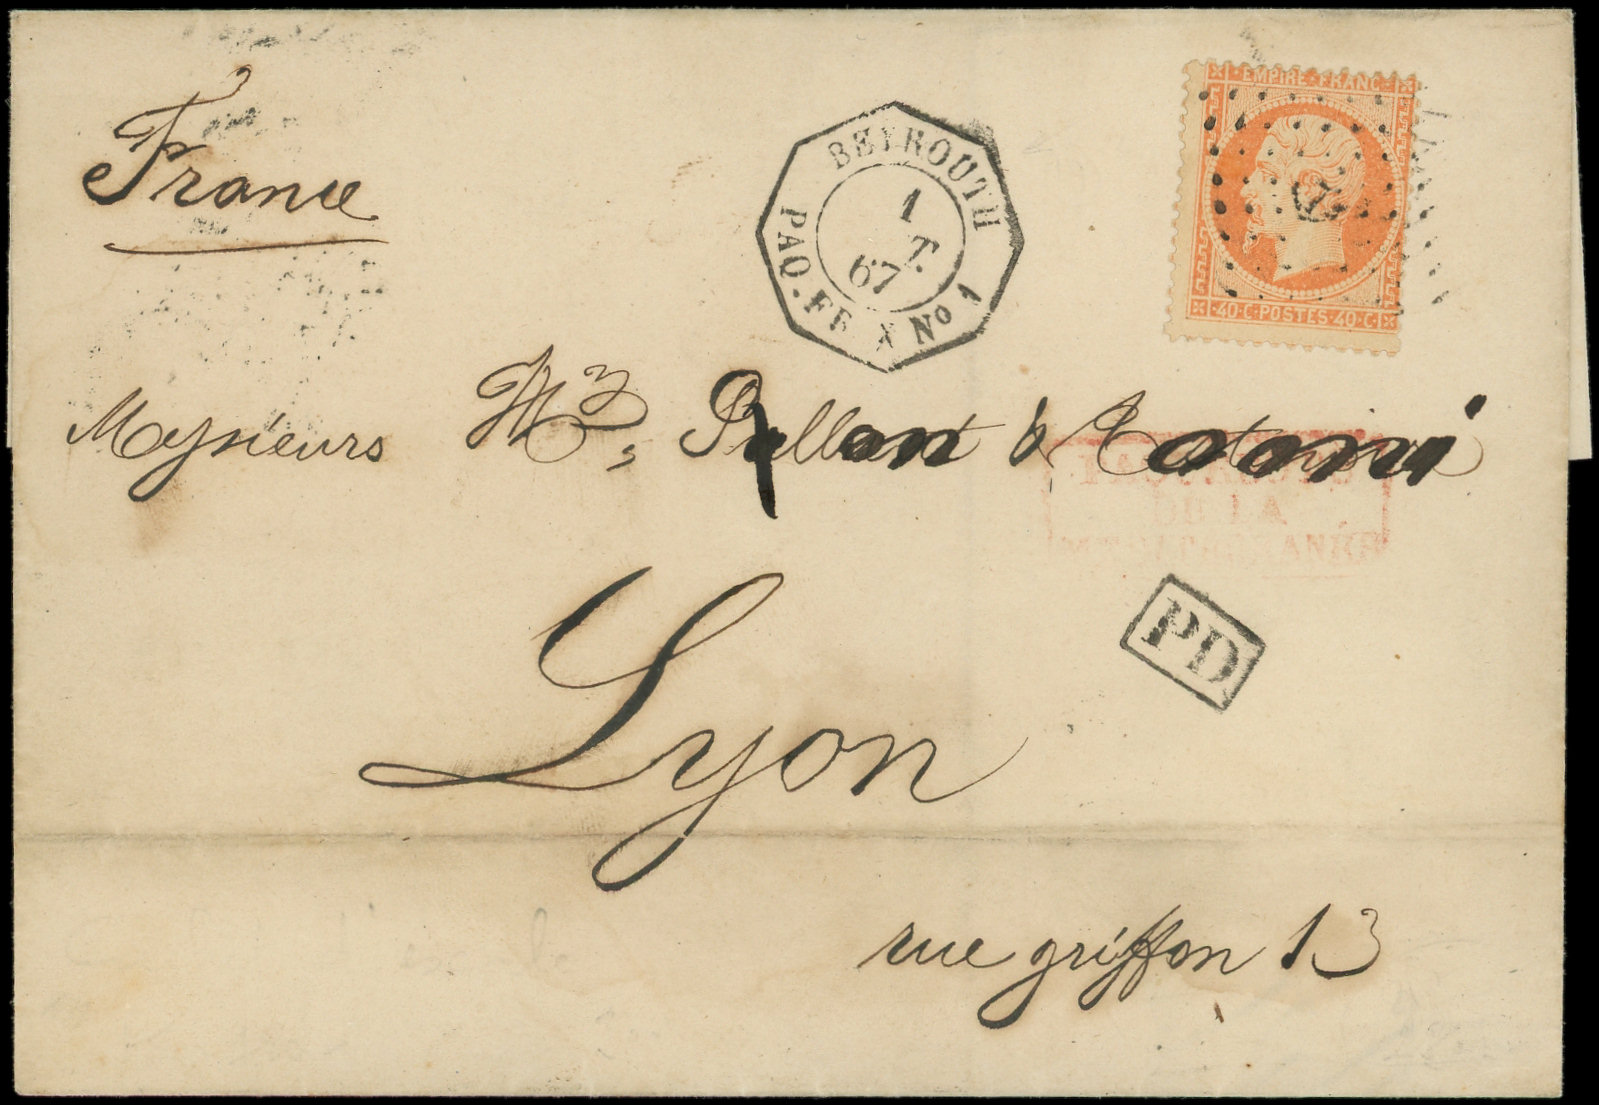 France
BEYROUTH
1
T.
67
PAQ. FR. X No 1
EMPIRE·FRANC
40·C·POSTES·40·C
Messieurs
DE LA
PD
Lyon
rue griffon 13